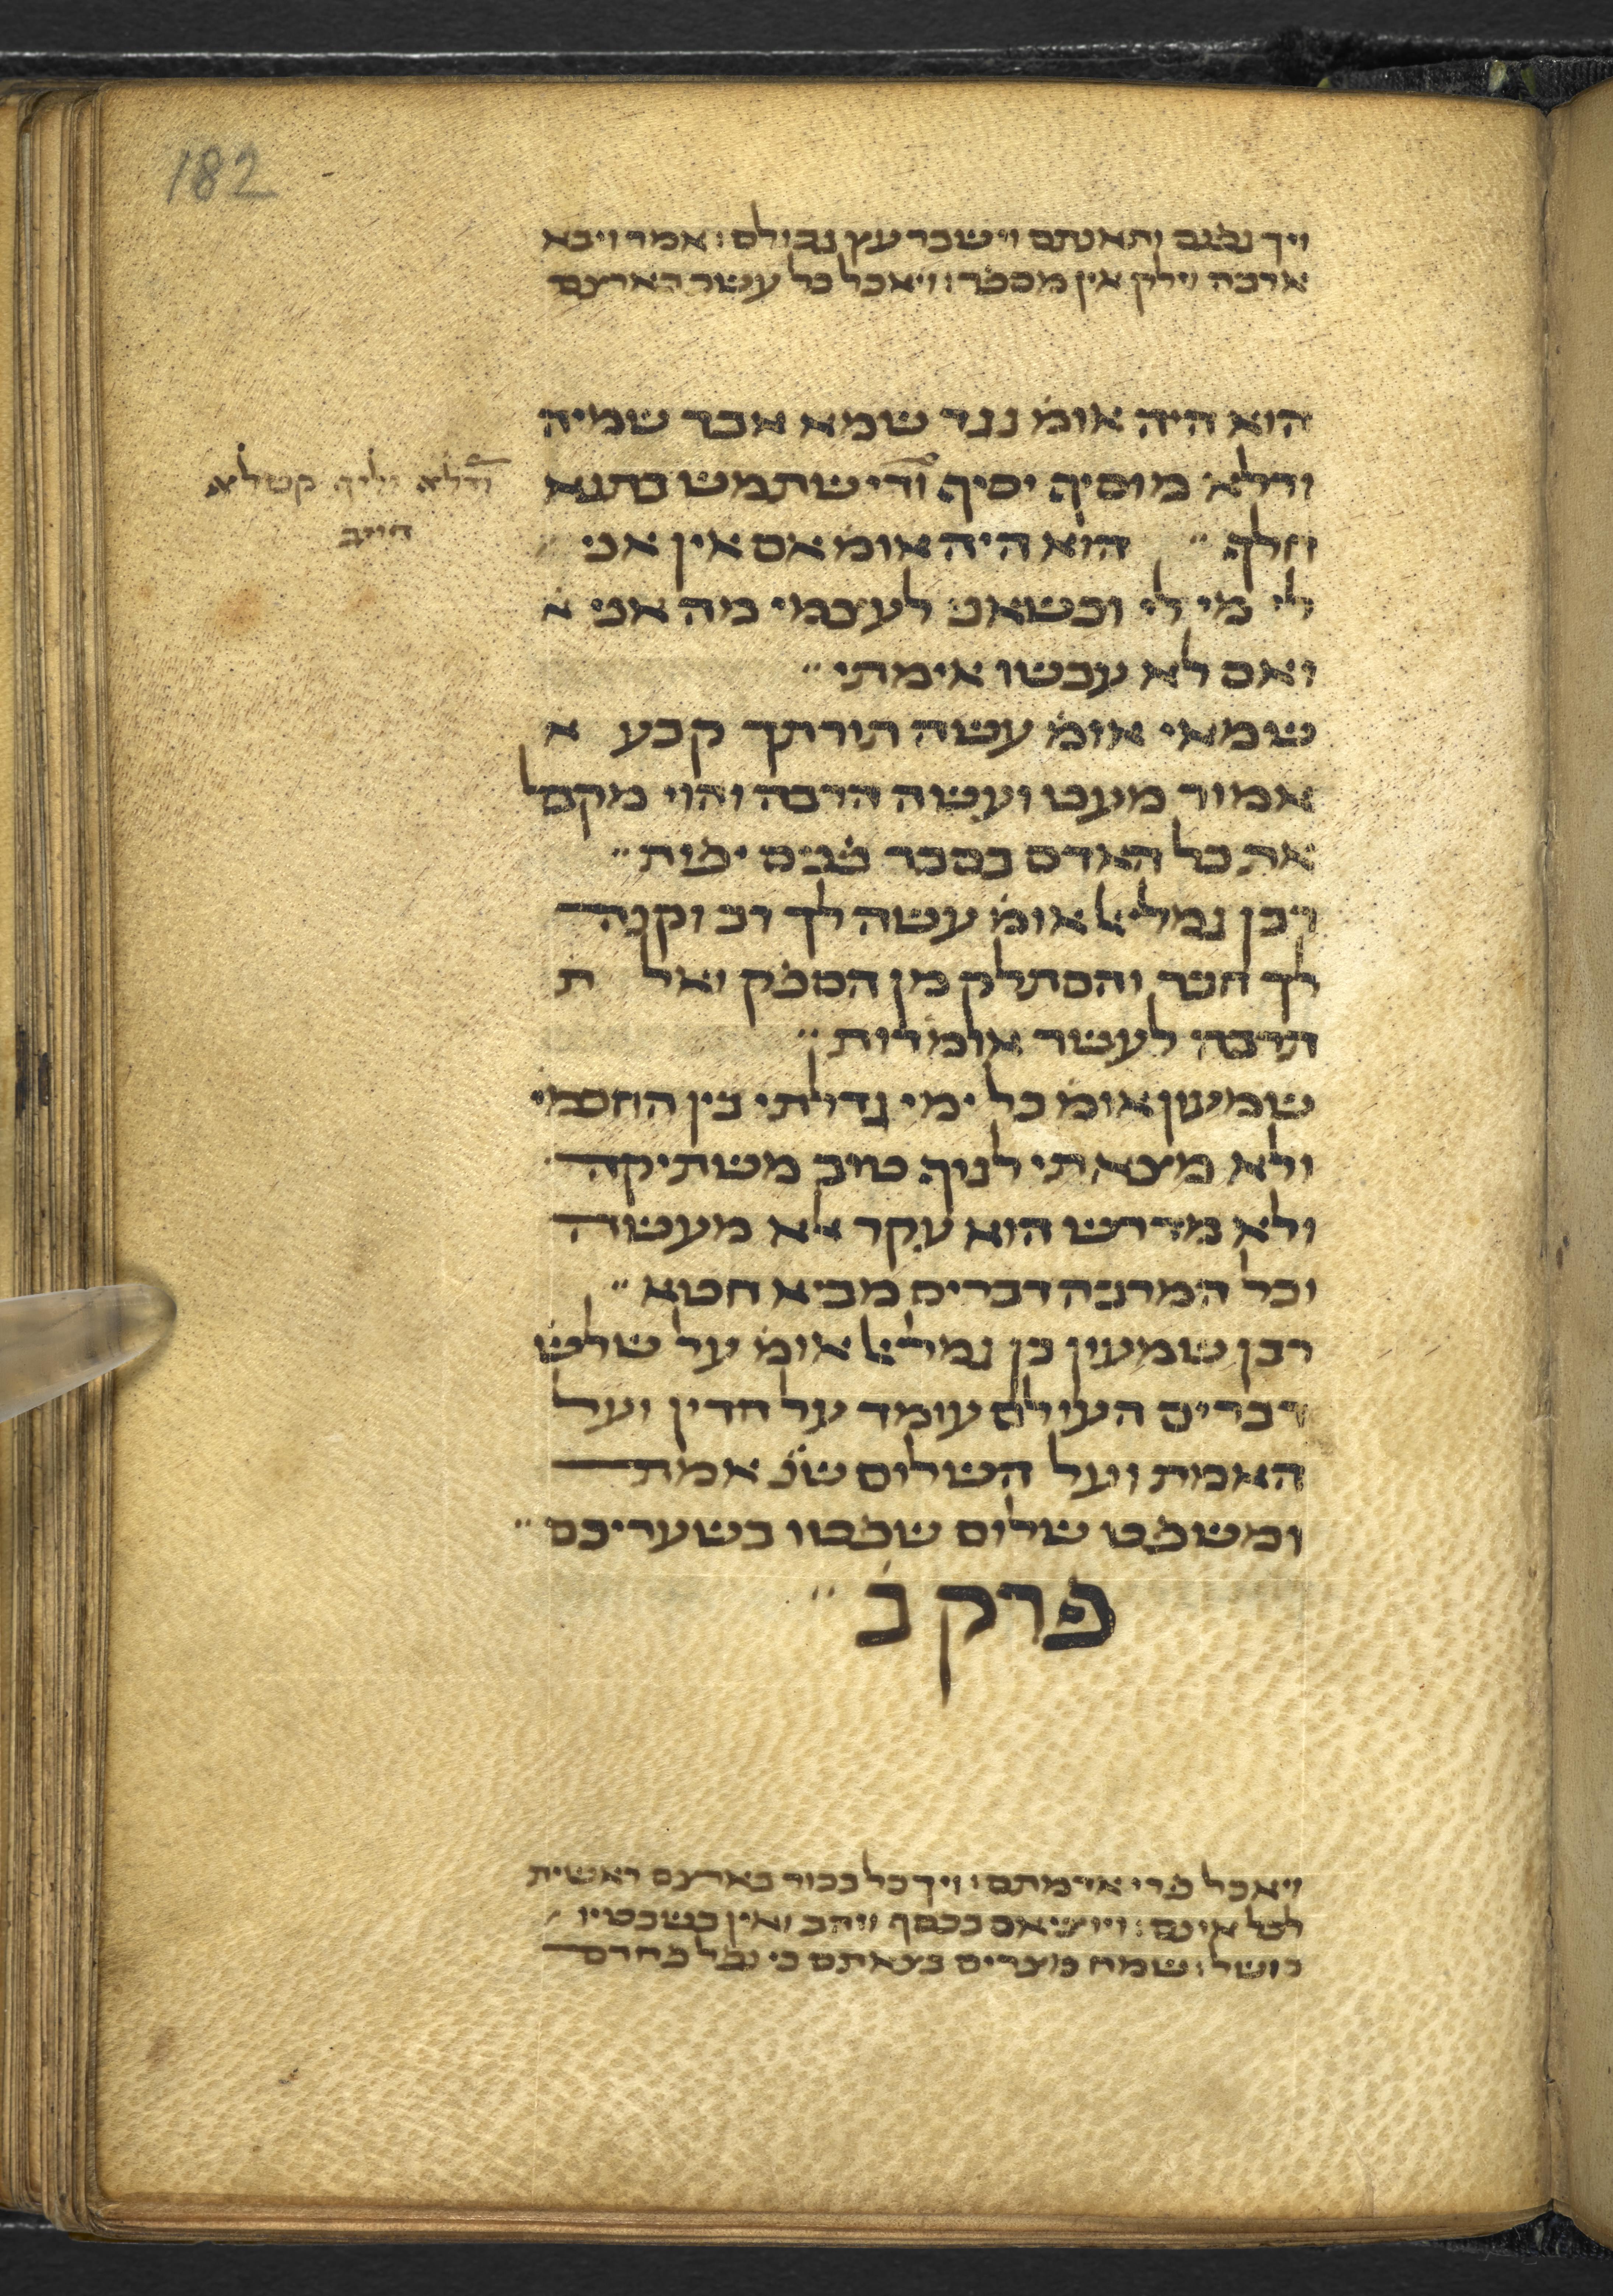 182
ויך גפנם ותאנתם וישבר עץ גבולם: אמר ויבא
ארבה וילק אין מספר: ויאכל כל עשב בארצם
הוא היה אומ׳ נגד שמא אבד שמיה
ודלא מוסיף יסיף ודי שתמש בתגא
ודלא יליף קטלא
חייב
חלף ״ הוא היה אומ׳ אם אין אני
לי מי לי וכשאני לעצמי מה אני א
ואם לא עכשו אימתי ״
שמאי אומ׳ עשה תורתך קבע א
אמור מעט ועשה הרבה והוי מקבל
את כל האדם בסבר פנים יפות ״
רבן גמליאל אומ׳ עשה לך רב וקנה
לך חבר והסתלק מן הספק ואל ת
תרבה לעשר אומדות ״
שמעון אומ׳ כל ימי גדלתי בין החכמי׳
ולא מצאתי לגוף טוב משתיקה
ולא מדרש הוא עקר אלא מעשה
וכל המרבה דברים מביא חטא ״
רבן שמעון בן גמליאל אומ׳ על שלש
דברים העולם עומד על הדין ועל
האמת ועל השלום שנ׳ אמת
ומשפט שלום שפטו בשעריכם ״
פרק ב׳ ״
ויאכל פרי אדמתם: ויך כל בכור בארצם ראשית
לכל אונם: ויוציאם בכסף וזהב ואין בשבטיו
כושל: שמח מצרים בצאתם כי נפל פחדם